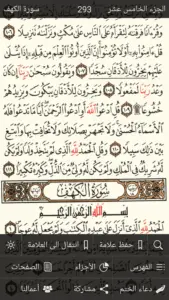 سورة الكهف 293 الجزء الخامس عشر
وَقُرْآنًا فَرَقْنَاهُ لِتَقْرَأَهُ عَلَى النَّاسِ عَلَىٰ مُكْثٍ وَنَزَّلْنَاهُ تَنْزِيلًا
١٠٦ قُلْ آمِنُوا بِهِ أَوْ لَا تُؤْمِنُوا إِنَّ الَّذِينَ أُوتُوا الْعِلْمَ مِنْ قَبْلِهِ إِذَا يُتْلَىٰ
عَلَيْهِمْ يَخِرُّونَ لِلْأَذْقَانِ سُجَّدًا ١٠٧ وَيَقُولُونَ سُبْحَانَ رَبِّنَا إِنْ كَانَ
وَعْدُ رَبِّنَا لَمَفْعُولًا ١٠٨ وَيَخِرُّونَ لِلْأَذْقَانِ يَبْكُونَ وَيَزِيدُهُمْ خُشُوعًا
١٠٩ قُلِ ادْعُوا اللَّهَ أَوِ ادْعُوا الرَّحْمَٰنَ أَيًّا مَا تَدْعُوا فَلَهُ الْأَسْمَاءُ
الْحُسْنَىٰ وَلَا تَجْهَرْ بِصَلَاتِكَ وَلَا تُخَافِتْ بِهَا وَابْتَغِ بَيْنَ ذَٰلِكَ سَبِيلًا
١١٠ وَقُلِ الْحَمْدُ لِلَّهِ الَّذِي لَمْ يَتَّخِذْ وَلَدًا وَلَمْ يَكُنْ لَهُ شَرِيكٌ
فِي الْمُلْكِ وَلَمْ يَكُنْ لَهُ وَلِيٌّ مِنَ الذُّلِّ وَكَبِّرْهُ تَكْبِيرًا ١١١
سُورَةُ الْكَهْفِ
بِسْمِ اللَّهِ الرَّحْمَٰنِ الرَّحِيمِ
الْحَمْدُ لِلَّهِ الَّذِي أَنْزَلَ عَلَىٰ عَبْدِهِ الْكِتَابَ وَلَمْ يَجْعَلْ لَهُ
حفظ علامة انتقال الى العلامة
الفهرس الأجزاء الصفحات
دعاء الختم مشاركة أعمالنا